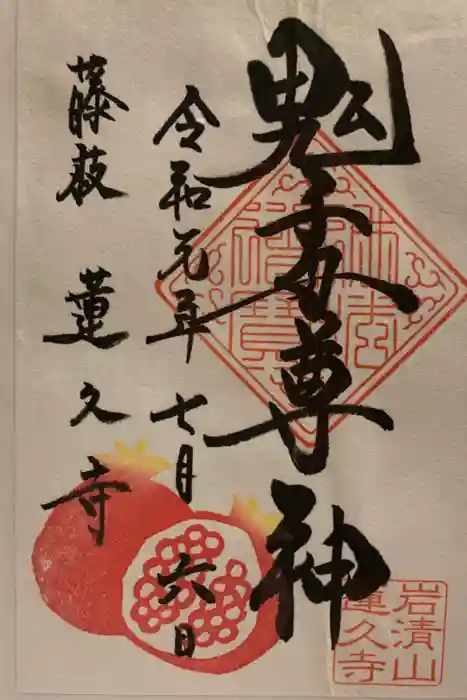 鬼子母尊神
令和元年七月六日
藤枝 蓮久寺
佛法僧寶
岩清山
蓮久寺